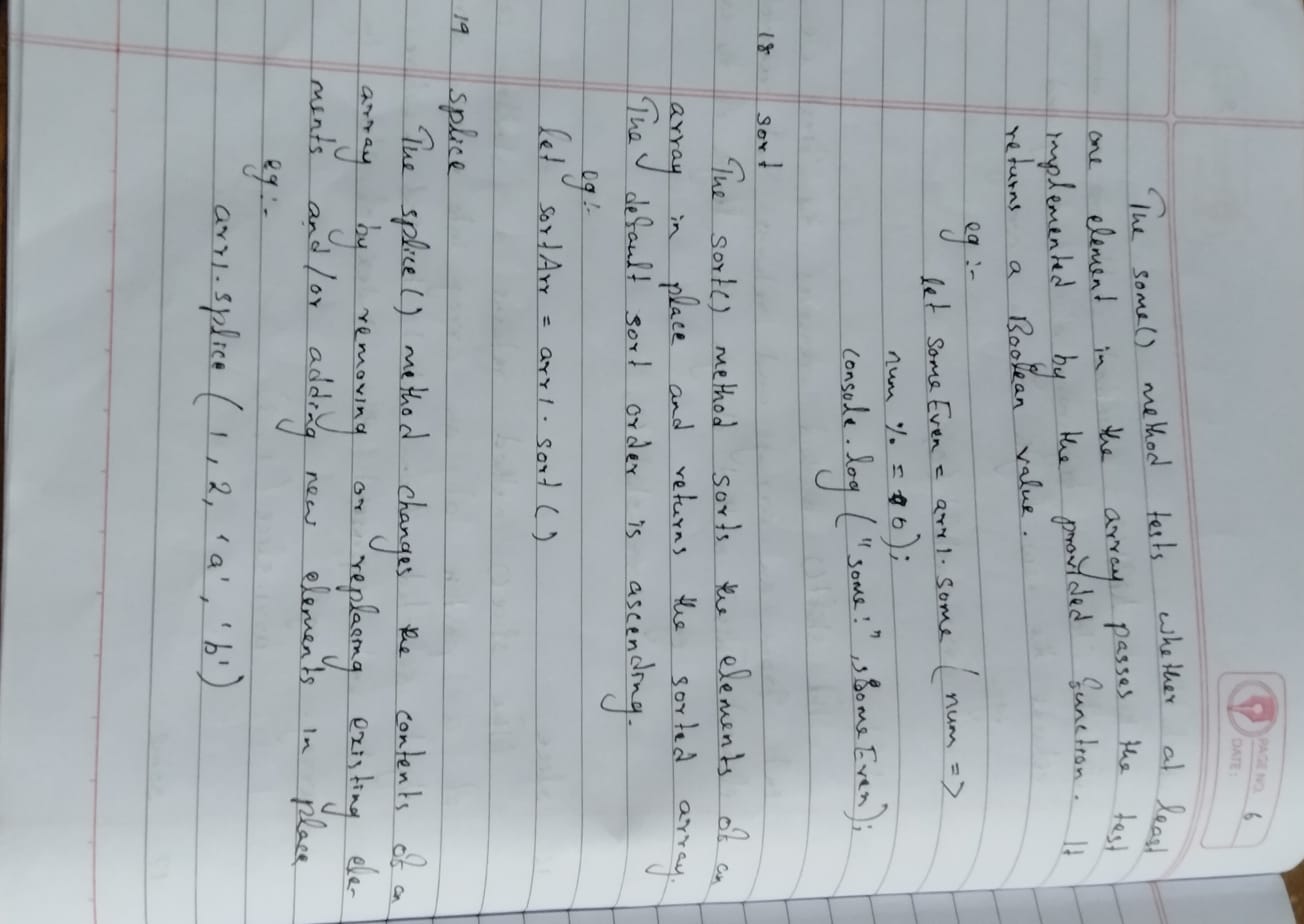 PAGE NO. 6
DATE:
The some() method tests whether at least
one element in the array passes the test
implemented by the provided function. It
returns a Boolean value.
eg :-
let someEven = arr1. some ( num =>
num % = 0);
console.log ("some:", someEven);
18 sort
The sort() method sorts the elements of an
array in place and returns the sorted array.
The default sort order is ascending.
eg :-
let sortArr = arr1. sort ()
19 splice
The splice() method changes the contents of an
array by removing or replacing existing ele-
ments and/or adding new elements in place
eg :-
arr1.splice ( 1, 2, 'a', 'b')